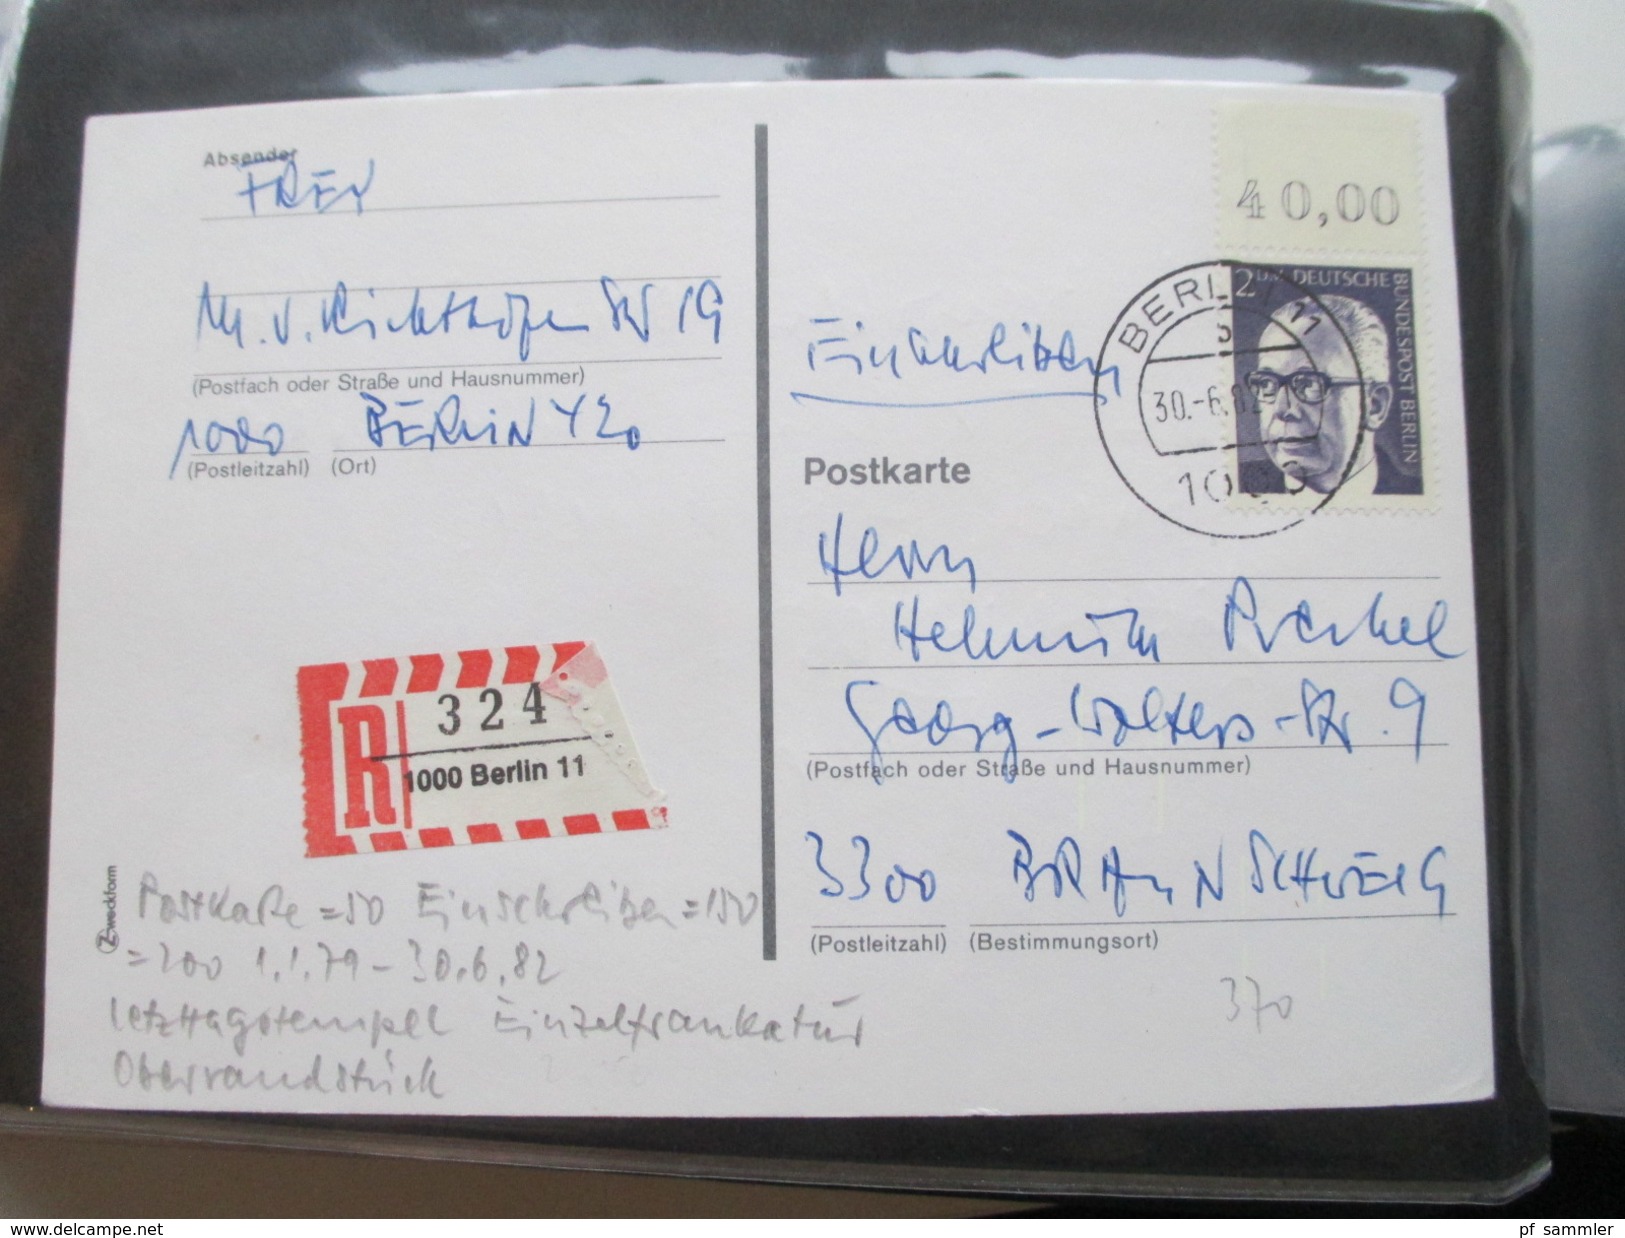 Absender
FREY
M. v. Richthofen Str 19
(Postfach oder Straße und Hausnummer)
1000 BERLIN 42
(Postleitzahl) (Ort)
R 324
1000 Berlin 11
Zweckform
Postkarte = 50 Einschreiben = 150
= 200 1.1.79 - 30.6.82
letzttagstempel Einzelfrankatur
Oberrandstück
40,00
2 DM DEUTSCHE
BUNDESPOST BERLIN
BERLIN 11
30.-6.82
1000
Einschreiben
Postkarte
Herrn
Helmuth
Georg-Wolters-Str. 9
(Postfach oder Straße und Hausnummer)
3300 BRAUNSCHWEIG
(Postleitzahl) (Bestimmungsort)
370
www.delcampe.net
pf_sammler